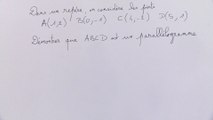 Dans un repère, on considère les points
A(1,2) B(0,-1) C(4,-2) D(5,1)
Démontrer que ABCD est un parallélogramme